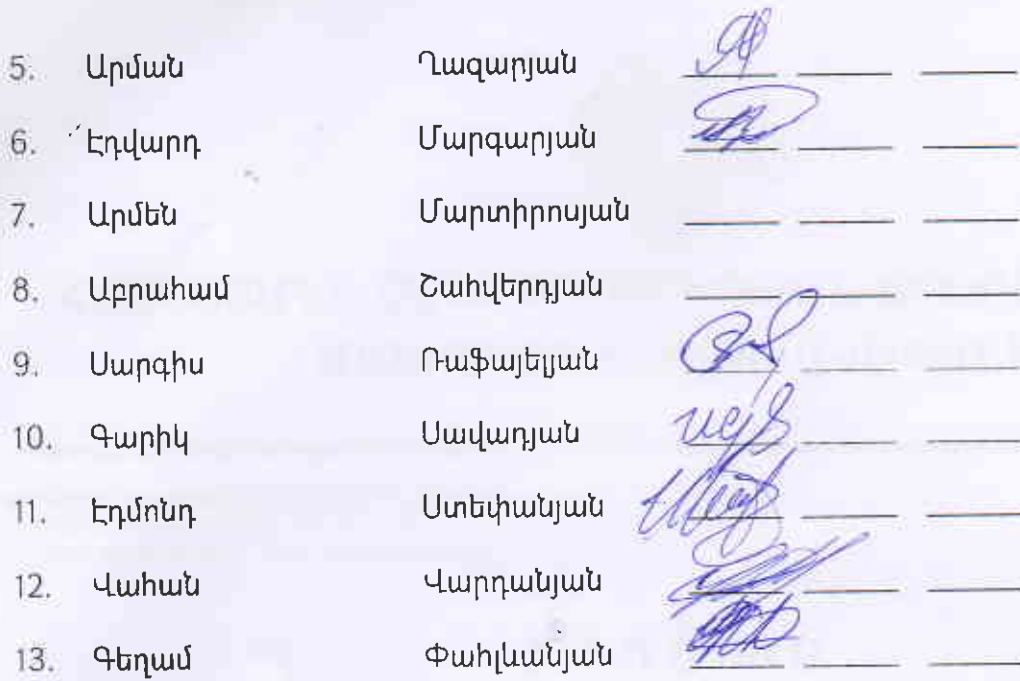 5. Արման Ղազարյան
6. Էդվարդ Մարգարյան
7. Արմեն Մարտիրոսյան
8. Աբրահամ Շահվերդյան
9. Սարգիս Ռաֆայելյան
10. Գարիկ Սավադյան
11. Էդմոնդ Ստեփանյան
12. Վահան Վարդանյան
13. Գեղամ Փահլևանյան